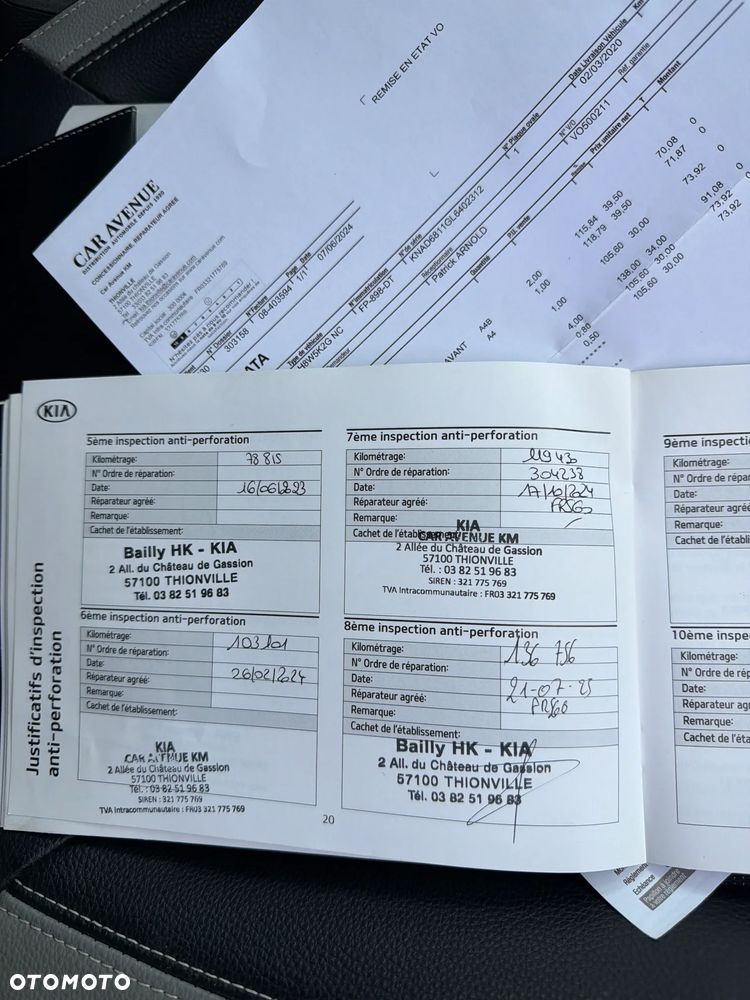 REMISE EN ETAT VO
CAR AVENUE
DISTRIBUTION AUTOMOBILE DEPUIS 1930
CONCESSIONNAIRE - REPARATEUR AGREE
Car Avenue KM
THIONVILLE
2 Allée du Château de Gassion
57100 THIONVILLE
N° Dossier
303158
N° Facture
08-403594
Page
1/1
Date
07/06/2024
Type de véhicule
H8W5K2G NC
N° immatriculation
FP-898-DT
N° de série
KNAD6811GL6402312
N° Plaque ovale
1
Date Livraison Véhicule
02/03/2020
Km
Réceptionnaire
Patrick ARNOLD
N° V/O
VO500211
Réf. garantie
Quantité
P.U. vente
Remise
Prix unitaire net
T
Montant
AVANT
A4B
A4
2,00
1,00
1,00
4,00
0,80
0,50
115,84 39,50
118,79 39,50
105,60 30,00
138,00 34,00
105,60 30,00
105,60 30,00
70,08 0
71,87 0
73,92 0
91,08 0
73,92 0
73,92
KIA
Justificatifs d'inspection
anti-perforation
5ème inspection anti-perforation
Kilométrage: 78 815
N° Ordre de réparation:
Date: 16/06/2023
Réparateur agréé:
Remarque:
Cachet de l'établissement:
Bailly HK - KIA
2 All. du Château de Gassion
57100 THIONVILLE
Tél. 03 82 51 96 83
6ème inspection anti-perforation
Kilométrage: 103101
N° Ordre de réparation:
Date: 26/02/2024
Réparateur agréé:
Remarque:
Cachet de l'établissement:
KIA
CAR AVENUE KM
2 Allée du Château de Gassion
57100 THIONVILLE
Tél. : 03 82 51 96 83
SIREN : 321 775 769
TVA Intracommunautaire : FR03 321 775 769
7ème inspection anti-perforation
Kilométrage: 11943
N° Ordre de réparation: 304238
Date: 17/10/2024
Réparateur agréé:
Remarque:
Cachet de l'établissement:
KIA
CAR AVENUE KM
2 Allée du Château de Gassion
57100 THIONVILLE
Tél. : 03 82 51 96 83
SIREN : 321 775 769
TVA Intracommunautaire : FR03 321 775 769
8ème inspection anti-perforation
Kilométrage: 136 756
N° Ordre de réparation:
Date: 21-07-25
Réparateur agréé:
Remarque:
Cachet de l'établissement:
Bailly HK - KIA
2 All. du Château de Gassion
57100 THIONVILLE
Tél. 03 82 51 96 83
20
9ème inspecti
Kilométrage:
N° Ordre de répar
Date:
Réparateur agréé
Remarque:
Cachet de l'établi
10ème inspe
Kilométrage:
N° Ordre de rép
Date:
Réparateur agr
Remarque:
Cachet de l'éta
Echéance
OTOMOTO